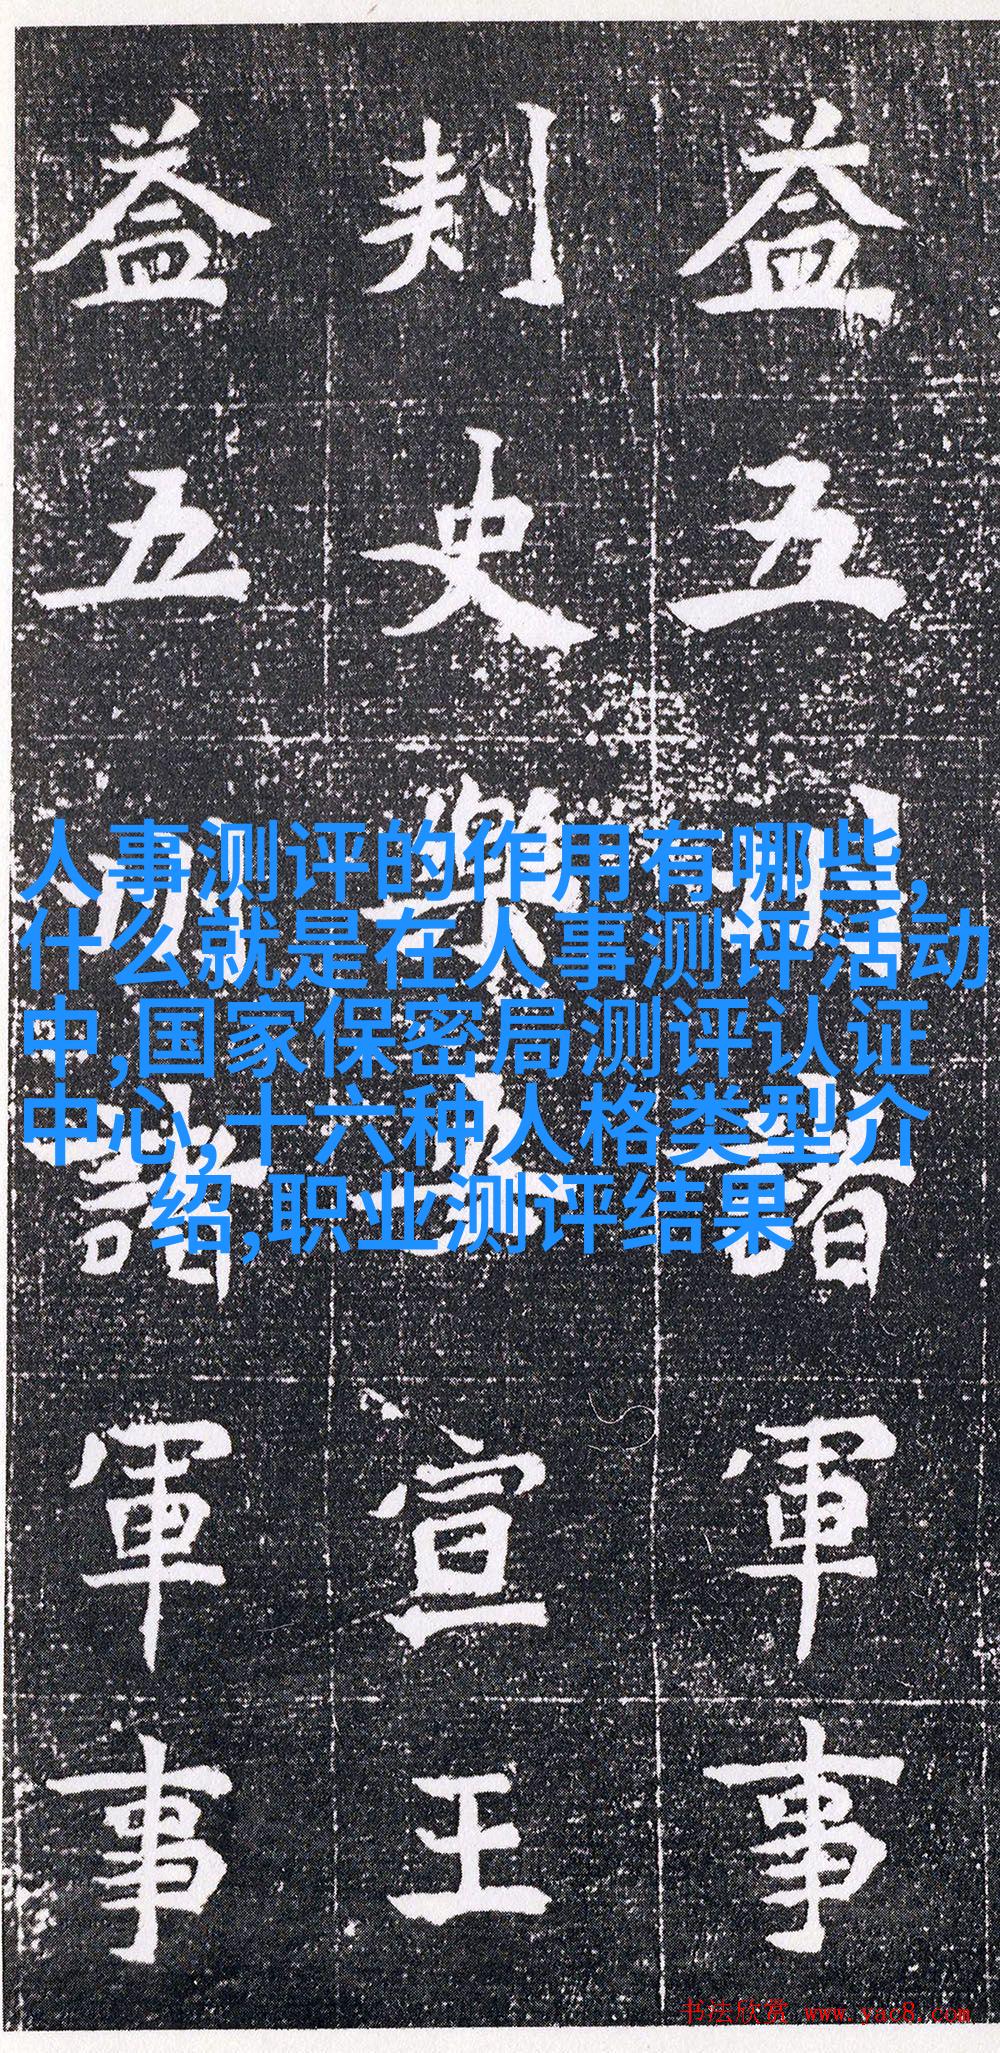 益五州諸軍事
刺史樂安宣王
益五州諸軍事
人事测评的作用有哪些,
什么就是在人事测评活动
中,国家保密局测评认证
中心,十六种人格类型介
绍,职业测评结果
书法欣赏 www.yac8.com